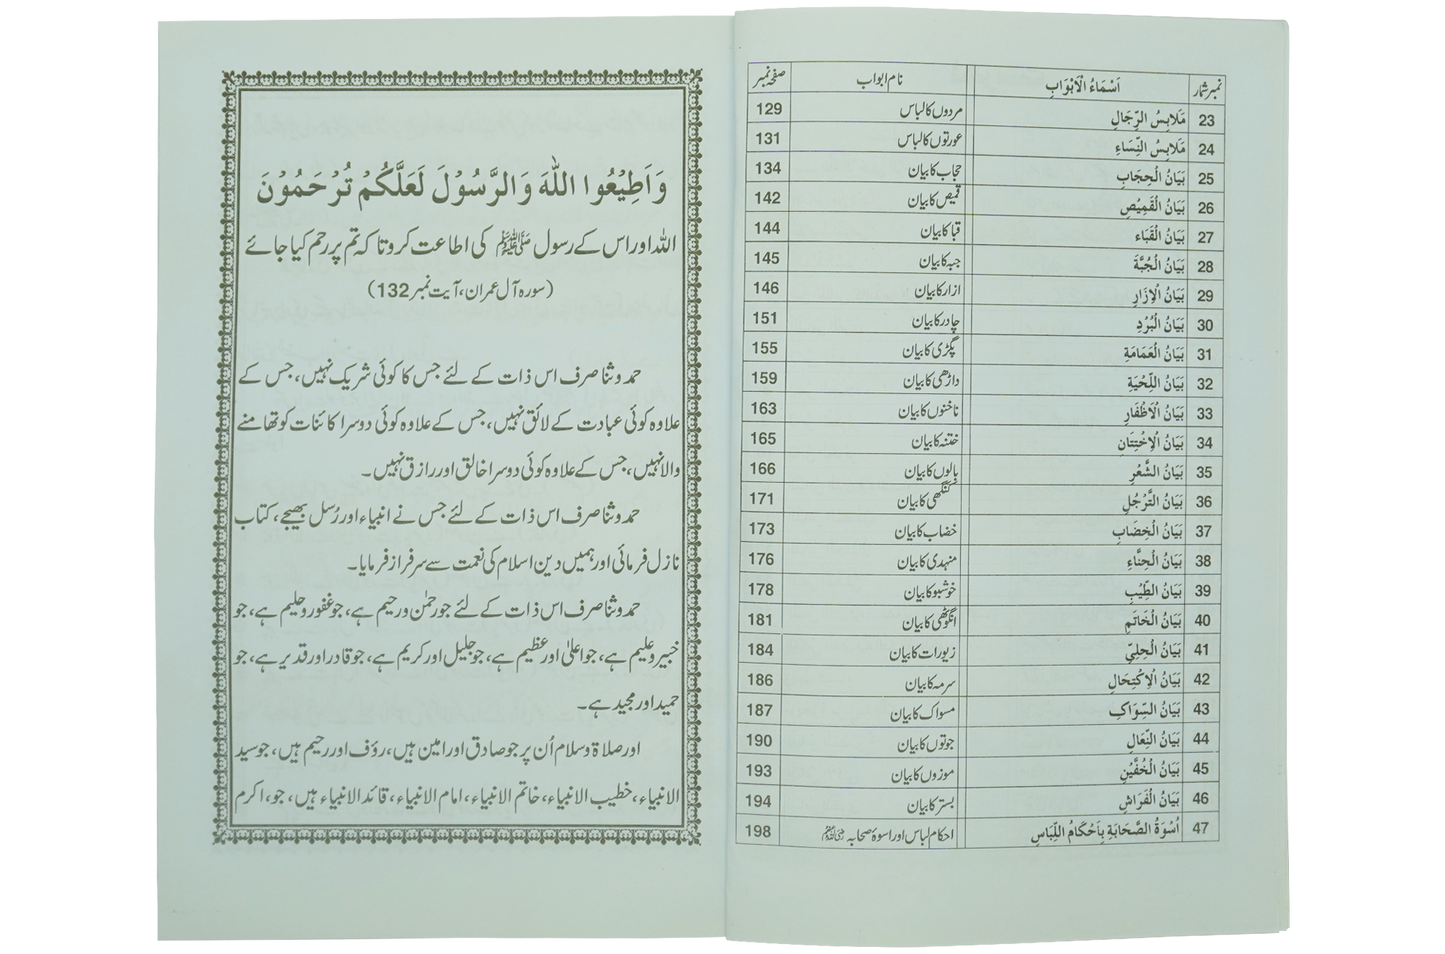 نمبر شمار اَسْمَاءُ الْاَبْوَابِ نام ابواب صفحہ نمبر
23 مَلَابِسُ الرِّجَالِ مردوں کا لباس 129
24 مَلَابِسُ النِّسَاءِ عورتوں کا لباس 131
25 بَيَانُ الْحِجَابِ حجاب کا بیان 134
26 بَيَانُ الْقَمِيْصِ قمیص کا بیان 142
27 بَيَانُ الْقَبَاء قبا کا بیان 144
28 بَيَانُ الْجُبَّةَ جبہ کا بیان 145
29 بَيَانُ الْاِزَارِ ازار کا بیان 146
30 بَيَانُ الْبُرْدِ چادر کا بیان 151
31 بَيَانُ الْعَمَامَةِ پگڑی کا بیان 155
32 بَيَانُ اللِّحْيَةِ داڑھی کا بیان 159
33 بَيَانُ الْاَظْفَارِ ناخنوں کا بیان 163
34 بَيَانُ الْاِخْتِتَانِ ختنہ کا بیان 165
35 بَيَانُ الشَّعْرِ بالوں کا بیان 166
36 بَيَانُ التَّرَجُلِ کنگھی کا بیان 171
37 بَيَانُ الْخِضَابِ خضاب کا بیان 173
38 بَيَانُ الْحِنَّاءِ منہدی کا بیان 176
39 بَيَانُ الطِّيْبِ خوشبو کا بیان 178
40 بَيَانُ الْخَاتَمِ انگوٹھی کا بیان 181
41 بَيَانُ الْحِلِيِّ زیورات کا بیان 184
42 بَيَانُ الْاِكْتِحَالِ سرمہ کا بیان 186
43 بَيَانُ السِّوَاكِ مسواک کا بیان 187
44 بَيَانُ النِّعَالِ جوتوں کا بیان 190
45 بَيَانُ الْخُفَّيْنِ موزوں کا بیان 193
46 بَيَانُ الْفَرَاشِ بستر کا بیان 194
47 اُسْوَةُ الصَّحَابَةِ بِاَحْكَامُ اللِّبَاسِ احکام لباس اور اسوۂ صحابہ 198
وَاَطِيْعُوا اللّٰهَ وَالرَّسُوْلَ لَعَلَّكُمْ تُرْحَمُوْنَ
اللہ اور اس کے رسول ﷺ کی اطاعت کرو تاکہ تم پر رحم کیا جائے
(سورہ آل عمران، آیت نمبر 132)
حمد و ثنا صرف اس ذات کے لئے جس کا کوئی شریک نہیں، جس کے
علاوہ کوئی عبادت کے لائق نہیں، جس کے علاوہ کوئی دوسرا کائنات کو تھامنے
والا نہیں، جس کے علاوہ کوئی دوسرا خالق اور رازق نہیں۔
حمد و ثنا صرف اس ذات کے لئے جس نے انبیاء اور رُسل بھیجے، کتاب
نازل فرمائی اور ہمیں دین اسلام کی نعمت سے سرفراز فرمایا۔
حمد و ثنا صرف اس ذات کے لئے جو رحمٰن و رحیم ہے، جو غفور و حلیم ہے، جو
خبیر و علیم ہے، جو اعلیٰ اور عظیم ہے، جو جلیل اور کریم ہے، جو قادر اور قدیر ہے، جو
حمید اور مجید ہے۔
اور صلاۃ و سلام اُن پر جو صادق اور امین ہیں، رؤف اور رحیم ہیں، جو سید
الانبیاء، خطیب الانبیاء، خاتم الانبیاء، امام الانبیاء، قائد الانبیاء ہیں، جو، اکرم